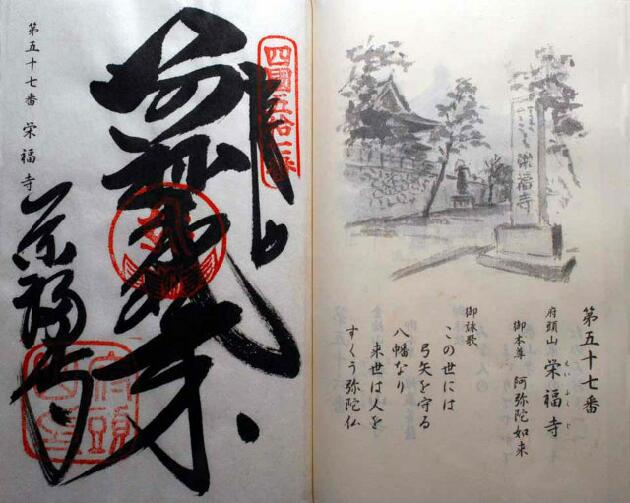 栄福寺
第五十七番
府頭山 栄福寺
えいふくじ
御本尊 阿弥陀如来
御詠歌
この世には
弓矢を守る
八幡なり
来世は人を
すくう弥陀仏
阿弥陀如来
栄福寺
府頭山
第五十七番 栄福寺